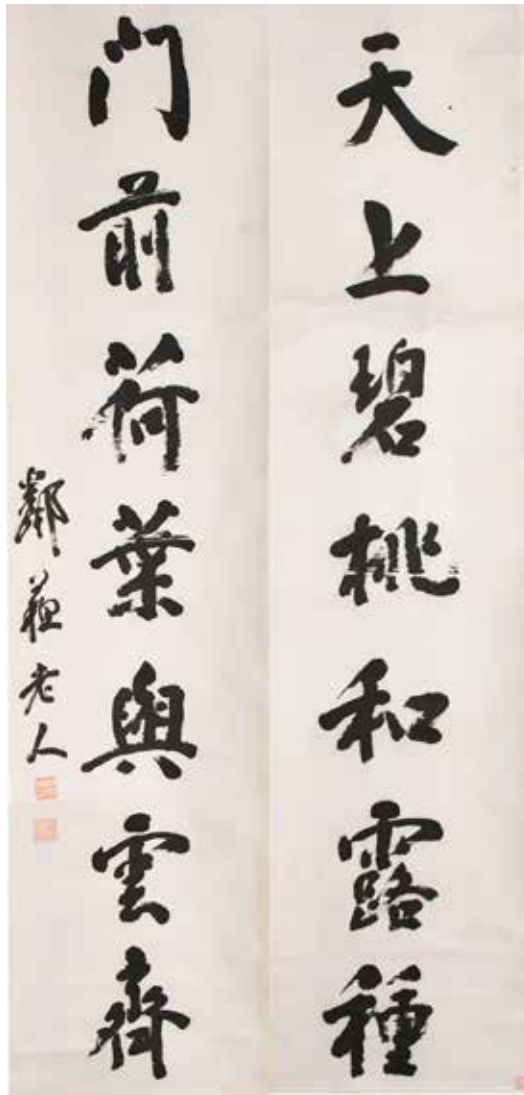 天上碧桃和露種
门前荷葉與雲齊
鄰蘇老人